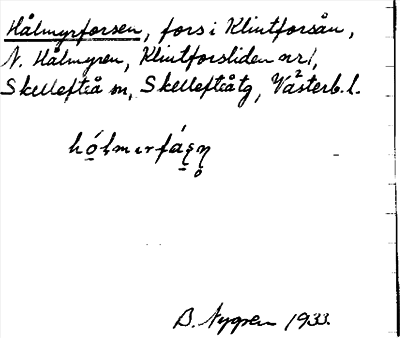 Hålmyrforsen, fors i Klintforsån,
N. Hålmyren, Klintforsliden nr 1,
Skellefteå sn, Skellefteå tg, Västerb. l.
B. Nygren 1933.